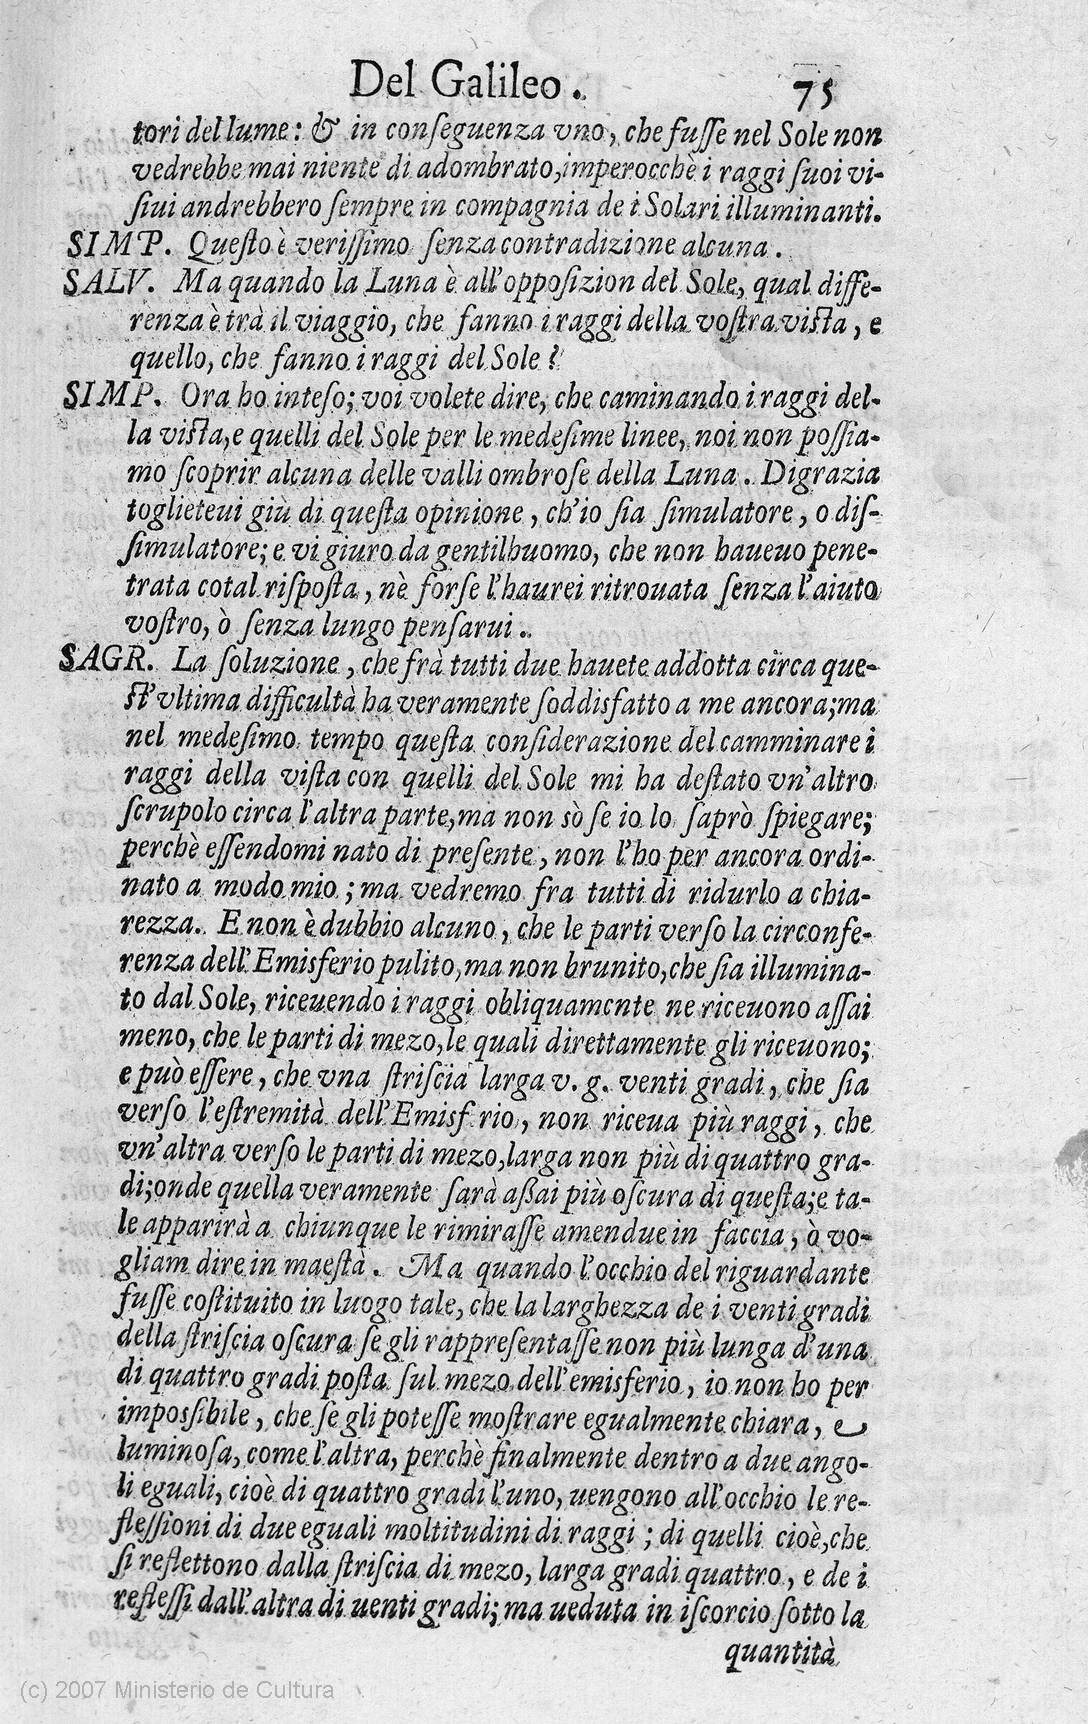 Del Galileo. 75
tori del lume: & in conſeguenza vno, che fuſſe nel Sole non
vedrebbe mai niente di adombrato, imperocchè i raggi ſuoi vi-
ſiui andrebbero ſempre in compagnia de i Solari illuminanti.
SIMP. Queſto è veriſſimo ſenza contradizione alcuna.
SALV. Ma quando la Luna è all'oppoſizion del Sole, qual diffe-
renza è trà il viaggio, che fanno i raggi della voſtra viſta, e
quello, che fanno i raggi del Sole?
SIMP. Ora ho inteſo; voi volete dire, che caminando i raggi del-
la viſta, e quelli del Sole per le medeſime linee, noi non poſſia-
mo ſcoprir alcuna delle valli ombroſe della Luna. Digrazia
toglieteui giù di queſta opinione, ch'io ſia ſimulatore, o diſ-
ſimulatore; e vi giuro da gentilhuomo, che non haueuo pene-
trata cotal riſpoſta, nè forſe l'haurei ritrouata ſenza l'aiuto
voſtro, ò ſenza lungo penſarui.
SAGR. La ſoluzione, che frà tutti due hauete addotta circa que-
ſt'vltima difficultà ha veramente ſoddisfatto a me ancora; ma
nel medeſimo tempo queſta conſiderazione del camminare i
raggi della viſta con quelli del Sole mi ha deſtato vn'altro
ſcrupolo circa l'altra parte, ma non sò ſe io lo ſaprò ſpiegare;
perchè eſſendomi nato di preſente, non l'ho per ancora ordi-
nato a modo mio; ma vedremo fra tutti di ridurlo a chia-
rezza. E non è dubbio alcuno, che le parti verſo la circonfe-
renza dell'Emisferio pulito, ma non brunito, che ſia illumina-
to dal Sole, riceuendo i raggi obliquamente ne riceuono aſſai
meno, che le parti di mezo, le quali direttamente gli riceuono;
e può eſſere, che vna ſtriſcia larga v. g. venti gradi, che ſia
verſo l'eſtremità dell'Emisf rio, non riceua più raggi, che
vn'altra verſo le parti di mezo, larga non più di quattro gra-
di; onde quella veramente ſarà aßai più oſcura di queſta; e ta-
le apparirà a chiunque le rimiraſſe amendue in faccia, ò vo-
gliam dire in maeſtà. Ma quando l'occhio del riguardante
fuſſe coſtituito in luogo tale, che la larghezza de i venti gradi
della ſtriſcia oſcura ſe gli rappreſentaſſe non più lunga d'una
di quattro gradi poſta ſul mezo dell'emisferio, io non ho per
impoſsibile, che ſe gli poteſſe moſtrare egualmente chiara, e
luminoſa, come l'altra, perchè finalmente dentro a due ango-
li eguali, cioè di quattro gradi l'uno, uengono all'occhio le re-
fleſſioni di due eguali moltitudini di raggi; di quelli cioè, che
ſi reflettono dalla ſtriſcia di mezo, larga gradi quattro, e de i
refleſſi dall'altra di uenti gradi; ma ueduta in iſcorcio ſotto la
quantità
(c) 2007 Ministerio de Cultura